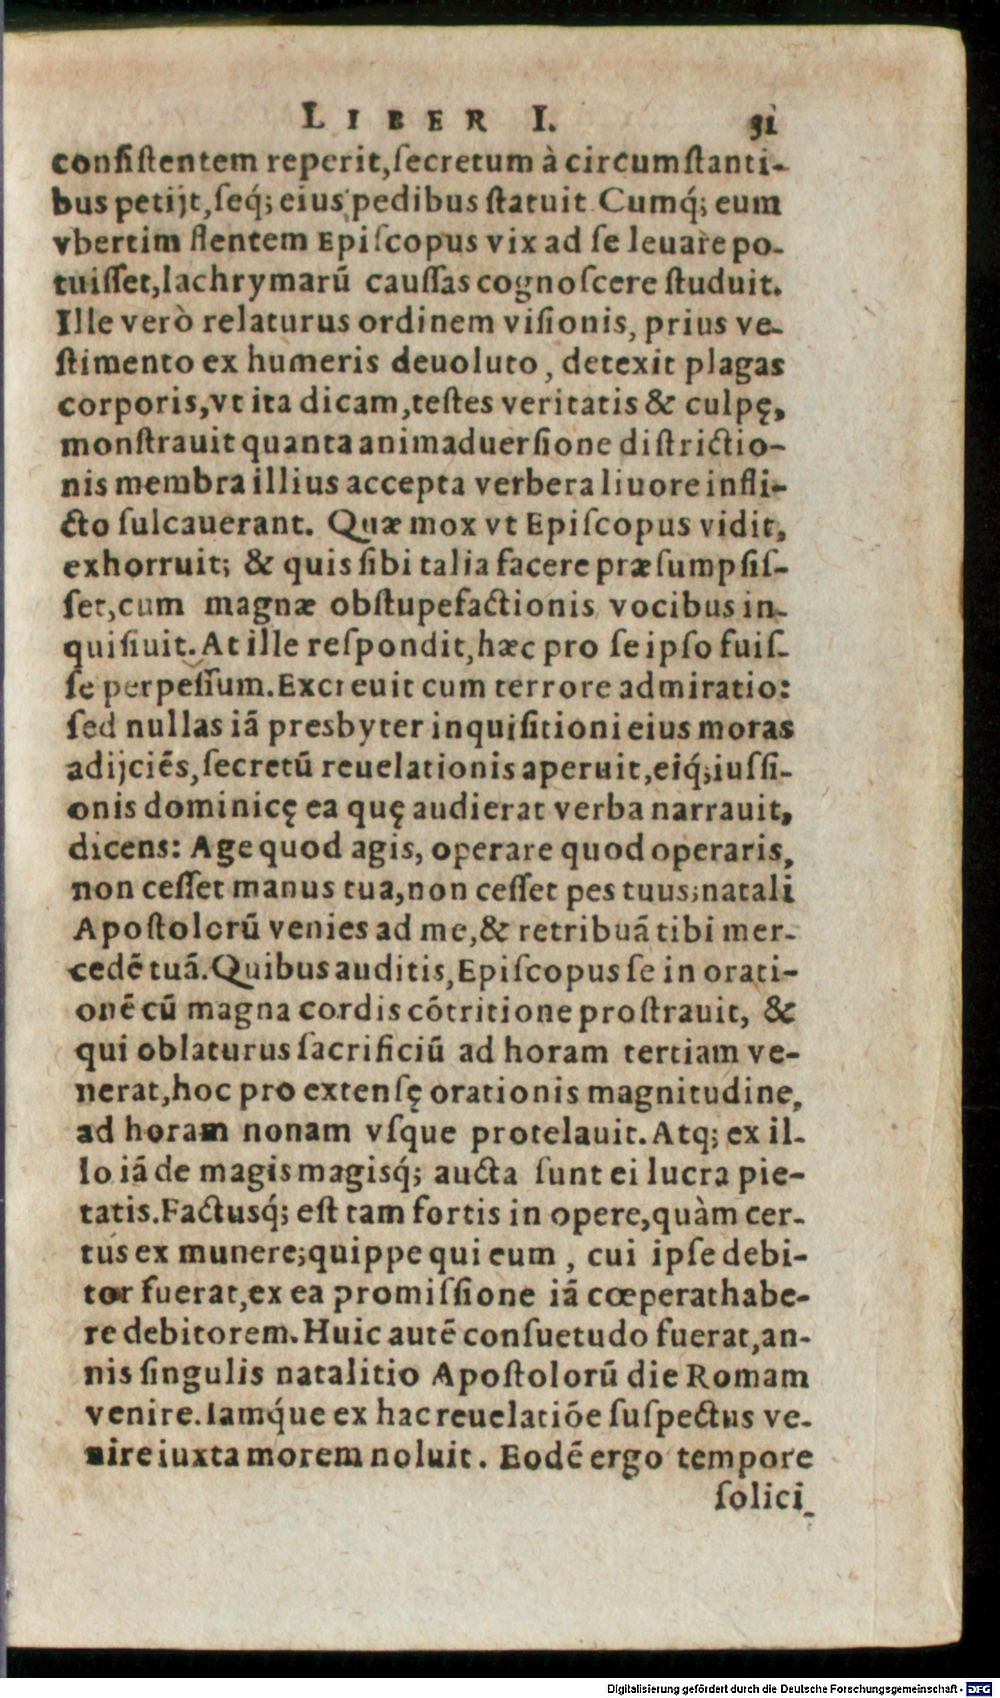 LIBER I. 31
consistentem reperit, secretum à circumstanti-
bus petijt, seq́; eius pedibus statuit. Cumq́; eum
vbertim flentem Episcopus vix ad se leuare po-
tuisset, lachrymarū caussas cognoscere studuit.
Ille verò relaturus ordinem visionis, prius ve-
stimento ex humeris deuoluto, detexit plagas
corporis, vt ita dicam, testes veritatis & culpę,
monstrauit quanta animaduersione districtio-
nis membra illius accepta verbera liuore infli-
cto sulcauerant. Quæ mox vt Episcopus vidit,
exhorruit; & quis sibi talia facere præsumpsis-
set, cum magnæ obstupefactionis vocibus in-
quisiuit. At ille respondit, hæc pro se ipso fuis-
se perpessum. Excreuit cum terrore admiratio:
sed nullas iā presbyter inquisitioni eius moras
adijciēs, secretū reuelationis aperuit, eiq́; iussi-
onis dominicę ea quę audierat verba narrauit,
dicens: Age quod agis, operare quod operaris,
non cesset manus tua, non cesset pes tuus; natali
Apostolorū venies ad me, & retribuā tibi mer-
cedē tuā. Quibus auditis, Episcopus se in orati-
onē cū magna cordis cōtritione prostrauit, &
qui oblaturus sacrificiū ad horam tertiam ve-
nerat, hoc pro extensę orationis magnitudine,
ad horam nonam vsque protelauit. Atq; ex il-
lo iā de magis magisq́; aucta sunt ei lucra pie-
tatis. Factusq́; est tam fortis in opere, quàm cer-
tus ex munere; quippe qui eum, cui ipse debi-
tor fuerat, ex ea promissione iā cœperat habe-
re debitorem. Huic autē consuetudo fuerat, an-
nis singulis natalitio Apostolorū die Romam
venire. Iamq́ue ex hac reuelatiōe suspectus ve-
nire iuxta morem noluit. Eodē ergo tempore
solici-
Digitalisierung gefördert durch die Deutsche Forschungsgemeinschaft - DFG